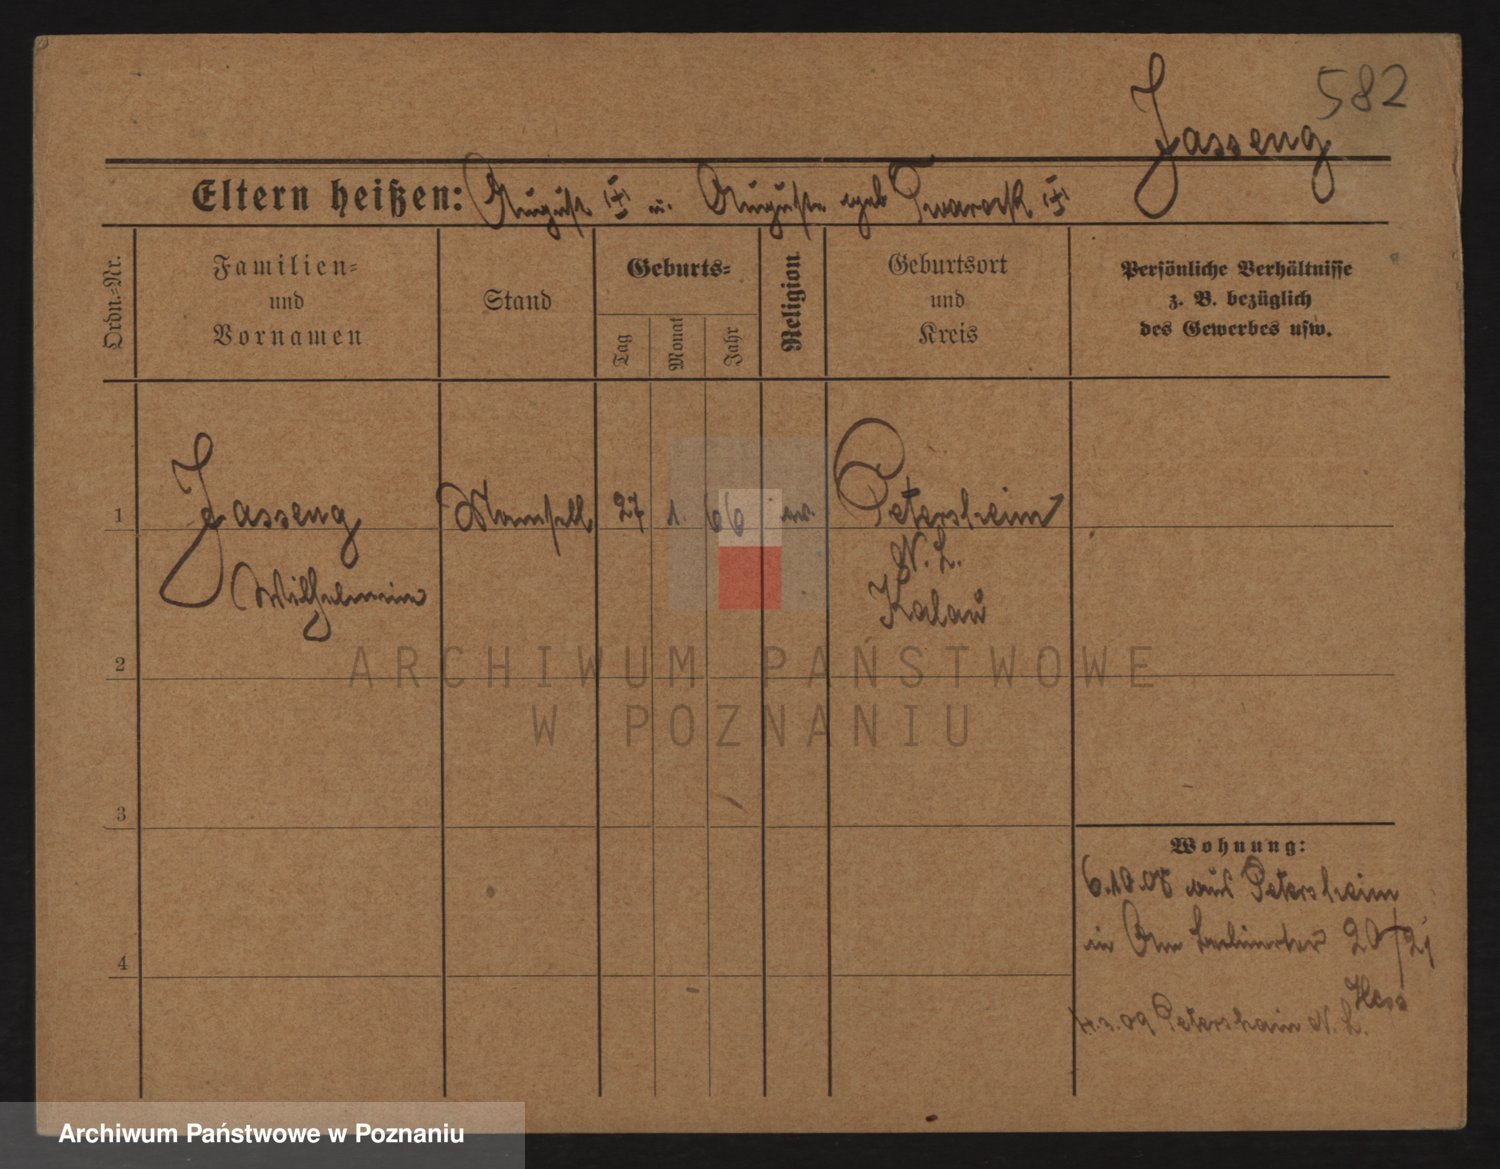 582
Jasseng
Eltern heißen: August (†) u. Auguste geb Twarock (†)
Ordn.=Nr.
Familien=
und
Vornamen
Stand
Geburts=
Tag
Monat
Jahr
Religion
Geburtsort
und
Kreis
Persönliche Verhältnisse
z. B. bezüglich
des Gewerbes usw.
1
Jasseng
Wilhelmine
Mamsell
27
1.
66
ev.
Petersheim
N. L.
Kalau
2
3
4
Wohnung:
6.10.08 aus Petersheim
in 20/21
Hess
3.09 Petershain N. L.
ARCHIWUM PAŃSTWOWE
W POZNANIU
Archiwum Państwowe w Poznaniu